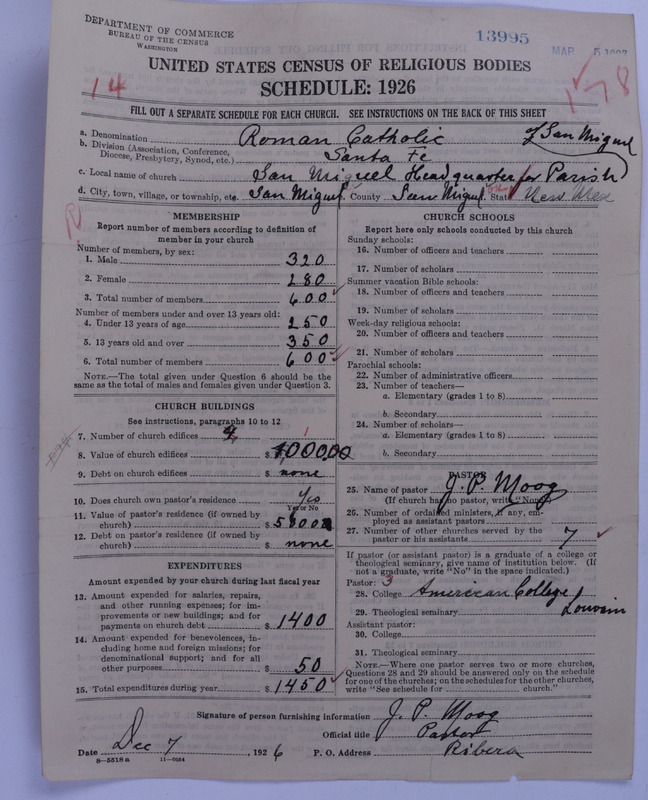 DEPARTMENT OF COMMERCE
BUREAU OF THE CENSUS
WASHINGTON
13995
MAR 5
UNITED STATES CENSUS OF RELIGIOUS BODIES
SCHEDULE: 1926
14
1-78
FILL OUT A SEPARATE SCHEDULE FOR EACH CHURCH. SEE INSTRUCTIONS ON THE BACK OF THIS SHEET
a. Denomination Roman Catholic
b. Division (Association, Conference, Diocese, Presbytery, Synod, etc.) Santa Fe
of San Miguel
c. Local name of church San Miguel Headquarter for Parish
d. City, town, village, or township, etc. San Miguel County San Miguel State New Mex
MEMBERSHIP
Report number of members according to definition of
member in your church
Number of members, by sex:
1. Male 320
2. Female 280
3. Total number of members 600
Number of members under and over 13 years old:
4. Under 13 years of age 250
5. 13 years old and over 350
6. Total number of members 600
NOTE.—The total given under Question 6 should be the
same as the total of males and females given under Question 3.
CHURCH BUILDINGS
See instructions, paragraphs 10 to 12
7. Number of church edifices 4 1
8. Value of church edifices $
9. Debt on church edifices $ none
10. Does church own pastor's residence Yes
Yes or No
11. Value of pastor's residence (if owned by
church) $
12. Debt on pastor's residence (if owned by
church) $ none
EXPENDITURES
Amount expended by your church during last fiscal year
13. Amount expended for salaries, repairs,
and other running expenses; for im-
provements or new buildings; and for
payments on church debt $ 1400
14. Amount expended for benevolences, in-
cluding home and foreign missions; for
denominational support; and for all
other purposes $ 50
15. Total expenditures during year $ 1450
CHURCH SCHOOLS
Report here only schools conducted by this church
Sunday schools:
16. Number of officers and teachers
17. Number of scholars
Summer vacation Bible schools:
18. Number of officers and teachers
19. Number of scholars
Week-day religious schools:
20. Number of officers and teachers
21. Number of scholars
Parochial schools:
22. Number of administrative officers
23. Number of teachers—
a. Elementary (grades 1 to 8)
b. Secondary
24. Number of scholars—
a. Elementary (grades 1 to 8)
b. Secondary
PASTOR
25. Name of pastor J. P. Moog
(If church has no pastor, write "None")
26. Number of ordained ministers, if any, em-
ployed as assistant pastors
27. Number of other churches served by the
pastor or his assistants 7
If pastor (or assistant pastor) is a graduate of a college or
theological seminary, give name of institution below. (If
not a graduate, write "No" in the space indicated.)
Pastor: 3
28. College American College
29. Theological seminary Louvain
Assistant pastor:
30. College
31. Theological seminary
NOTE.—Where one pastor serves two or more churches,
Questions 28 and 29 should be answered only on the schedule
for one of the churches; on the schedules for the other churches,
write "See schedule for church."
Signature of person furnishing information J. P. Moog
Official title Pastor
Date Dec 7, 1926 P. O. Address Ribera
8—5518 a 11—9034